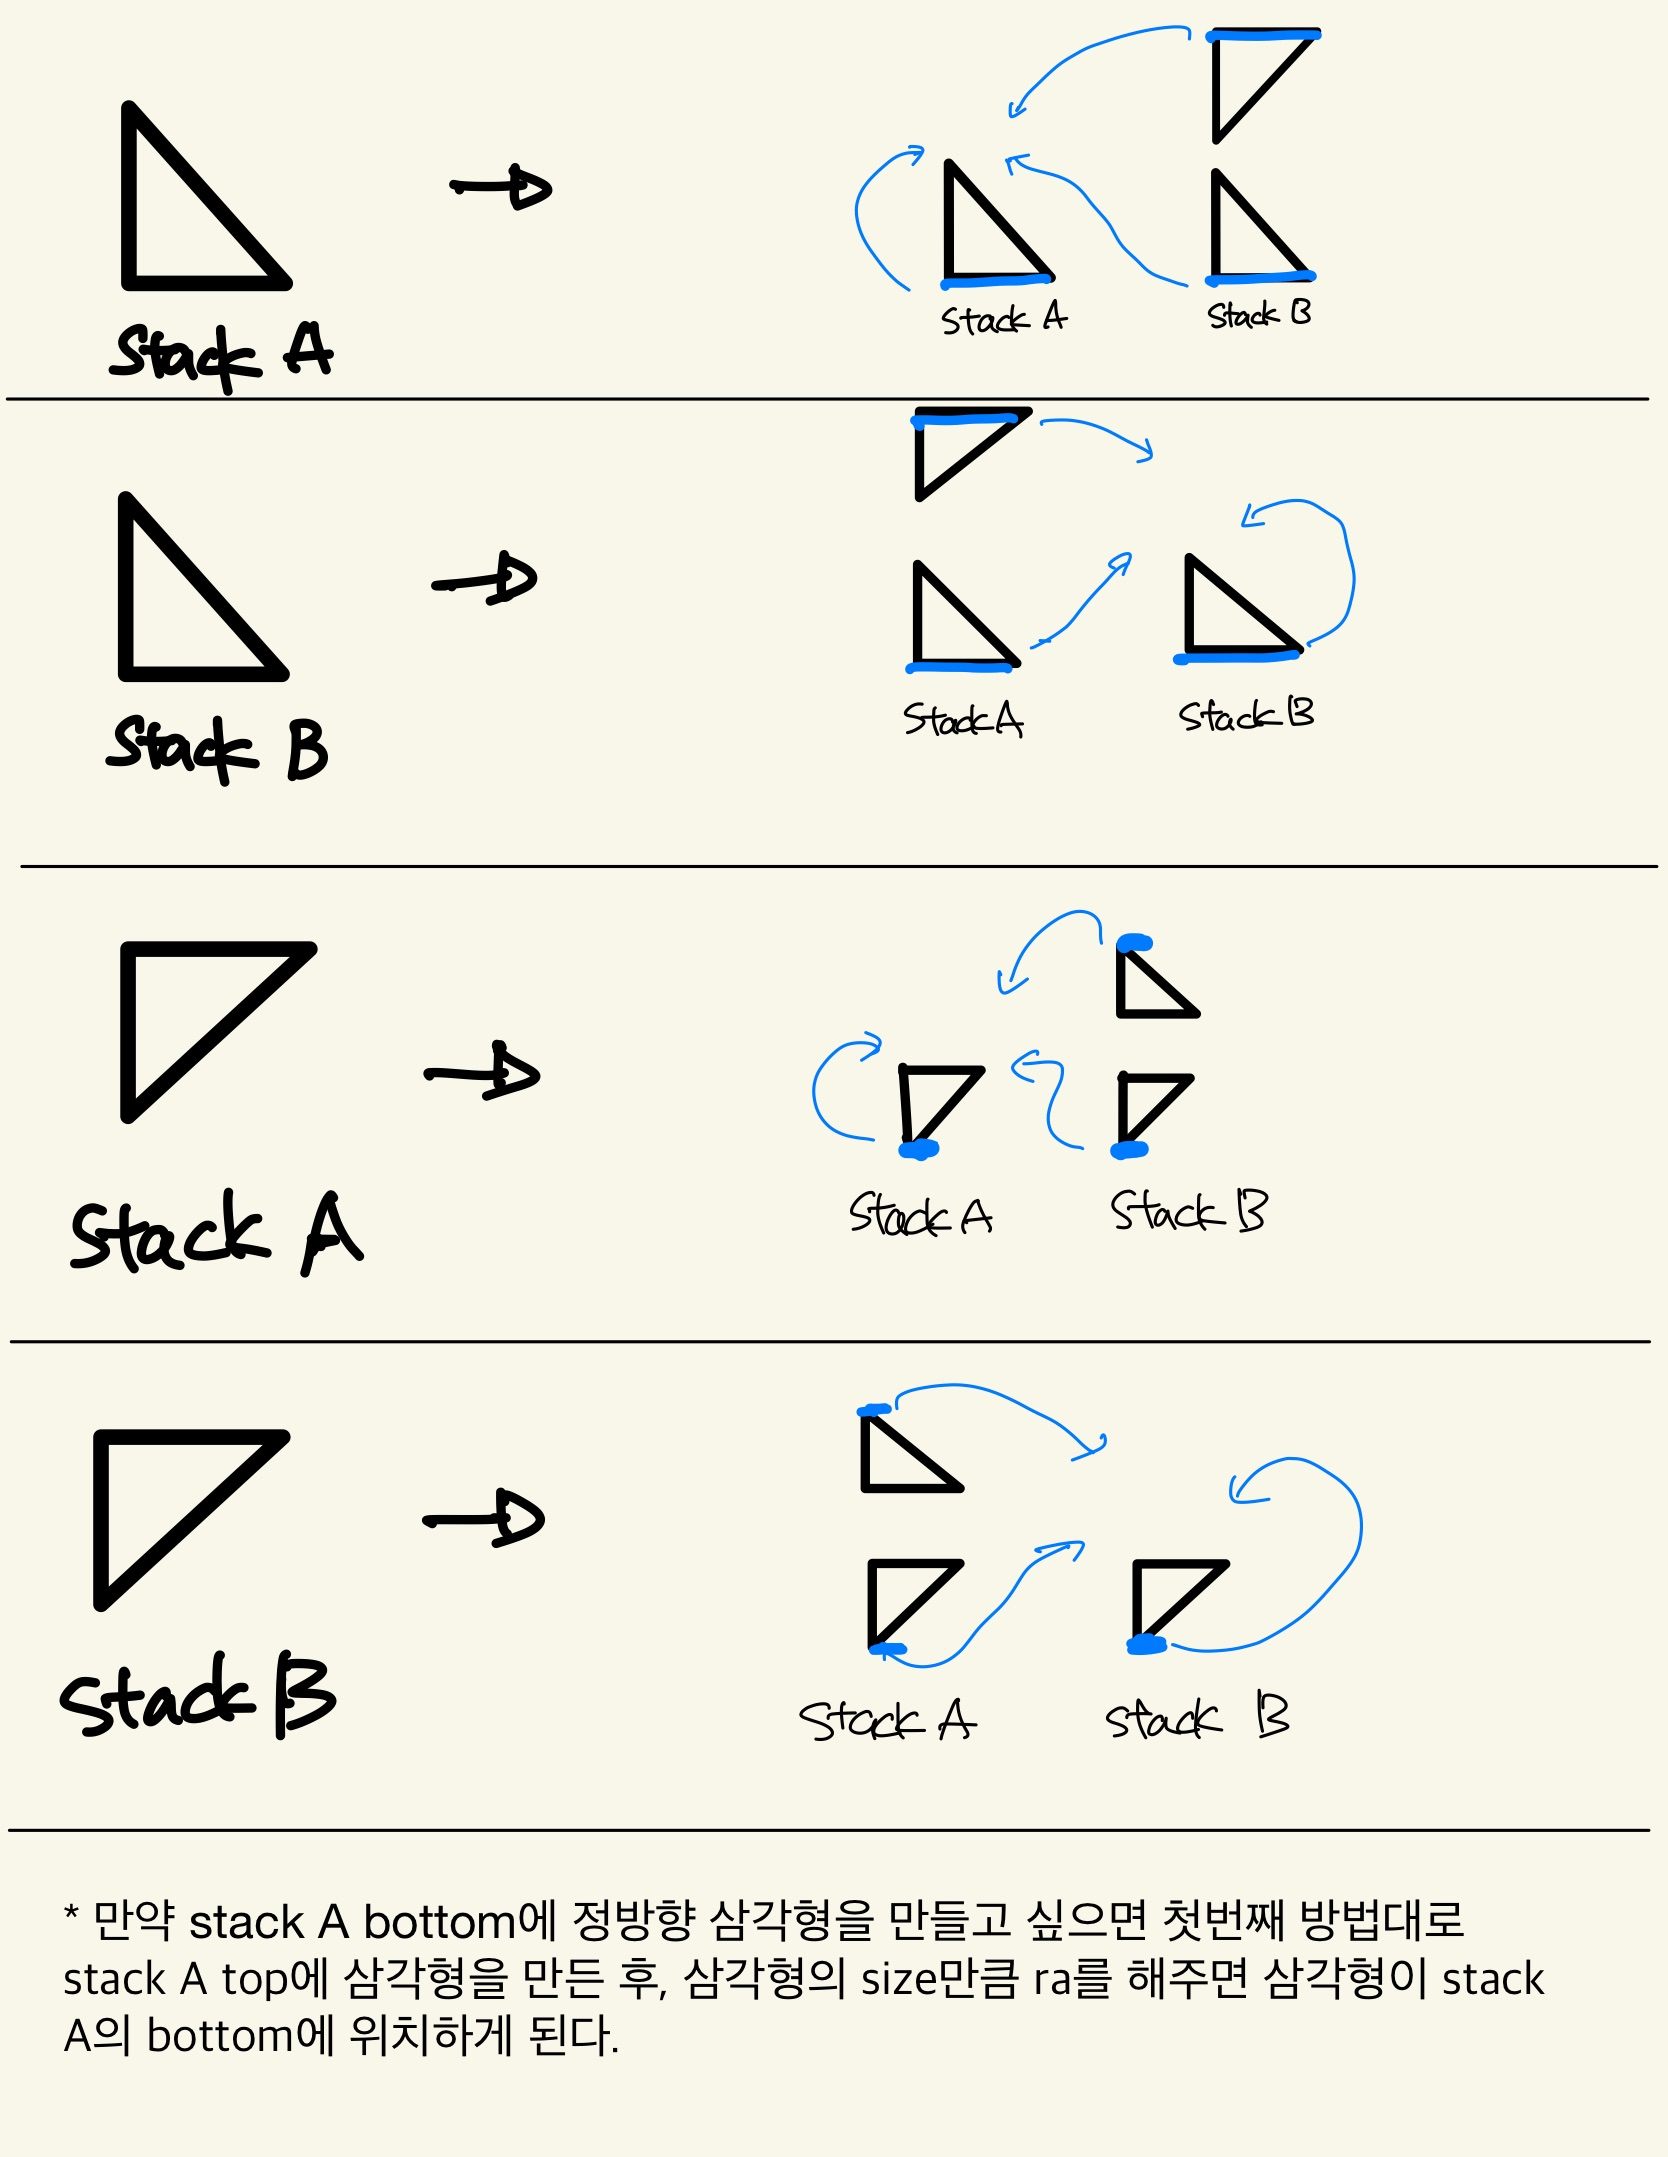 Stack A
Stack A
Stack B
Stack B
Stack A
Stack B
Stack A
Stack A
Stack B
Stack B
Stack A
Stack B
* 만약 stack A bottom에 정방향 삼각형을 만들고 싶으면 첫번째 방법대로
stack A top에 삼각형을 만든 후, 삼각형의 size만큼 ra를 해주면 삼각형이 stack
A의 bottom에 위치하게 된다.